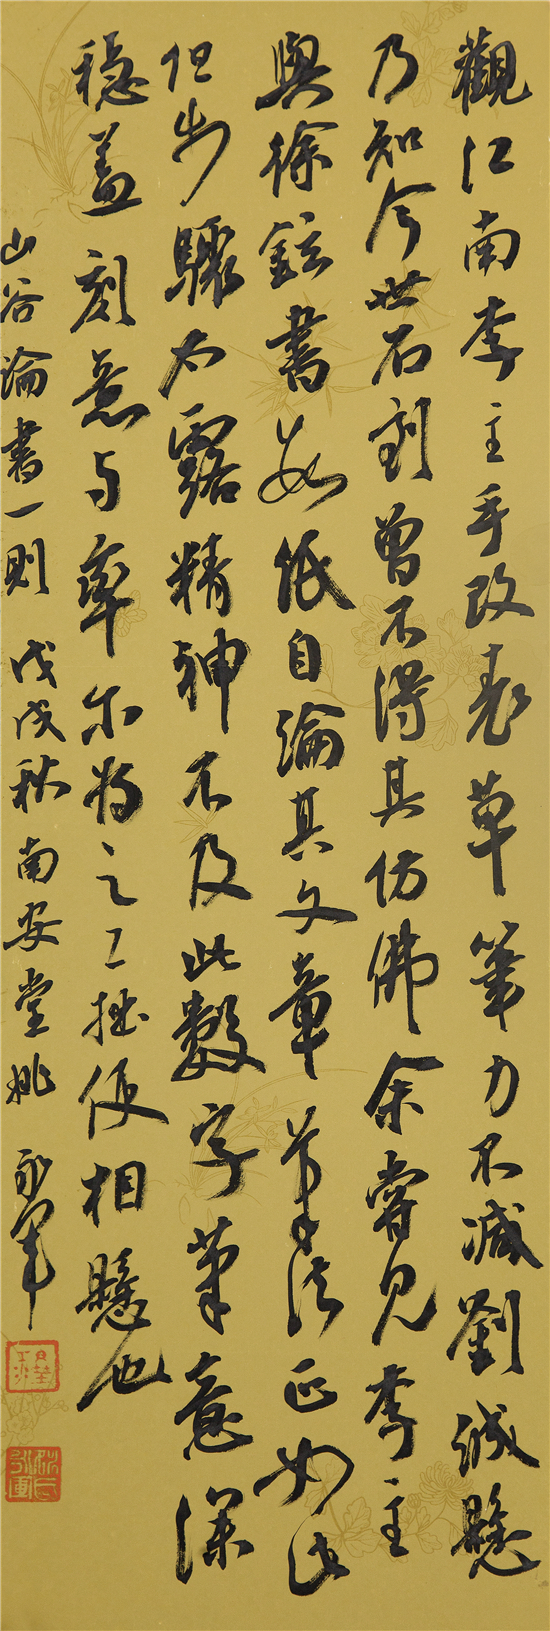 觀江南李主手改表草筆力不減劉誠懸
乃知今世石刻曾不得其仿佛余嘗見李主
與徐鉉書數紙自論其文章筆法正如此
但步驟太露精神不及此數字筆意深
穩蓋刻意与率尔為之工拙便相懸也
山谷論書一則 戊戌秋南安堂姚